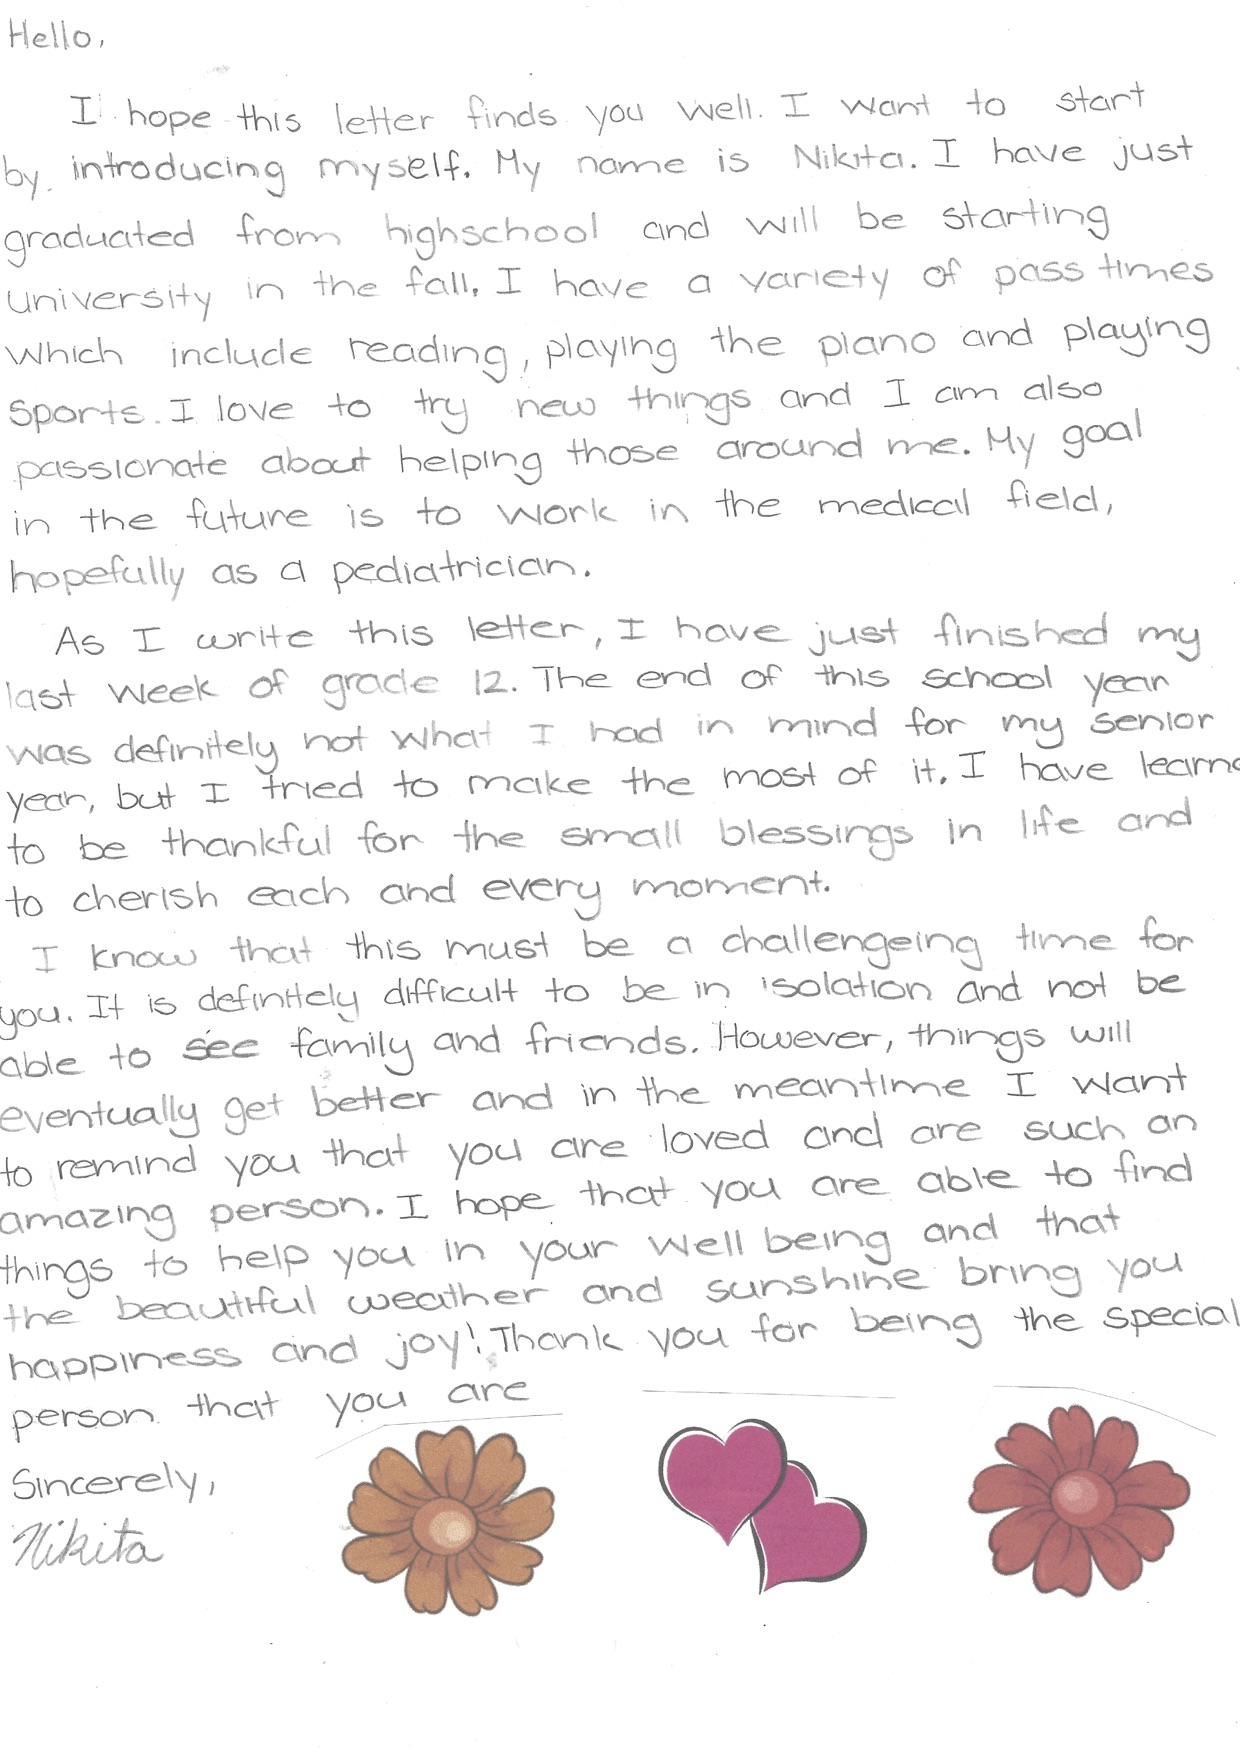 Hello,
I hope this letter finds you well. I want to start
by introducing myself. My name is Nikita. I have just
graduated from highschool and will be starting
university in the fall. I have a variety of pass times
which include reading, playing the piano and playing
sports. I love to try new things and I am also
passionate about helping those around me. My goal
in the future is to work in the medical field,
hopefully as a pediatrician.
As I write this letter, I have just finished my
last week of grade 12. The end of this school year
was definitely not what I had in mind for my senior
year, but I tried to make the most of it. I have learne
to be thankful for the small blessings in life and
to cherish each and every moment.
I know that this must be a challengeing time for
you. It is definitely difficult to be in isolation and not be
able to see family and friends. However, things will
eventually get better and in the meantime I want
to remind you that you are loved and are such an
amazing person. I hope that you are able to find
things to help you in your well being and that
the beautiful weather and sunshine bring you
happiness and joy! Thank you for being the special
person that you are
Sincerely,
Nikita